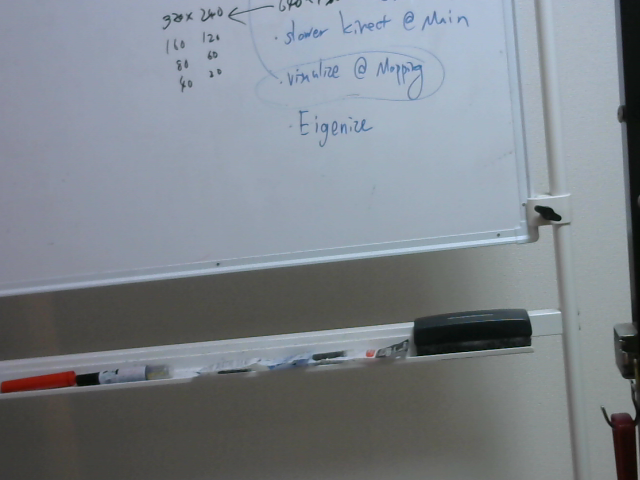 320 × 240 ← 640 ×
160 120
80 60
40 20
· slower kinect @ Main
· visulize @ Mapping
· Eigenize